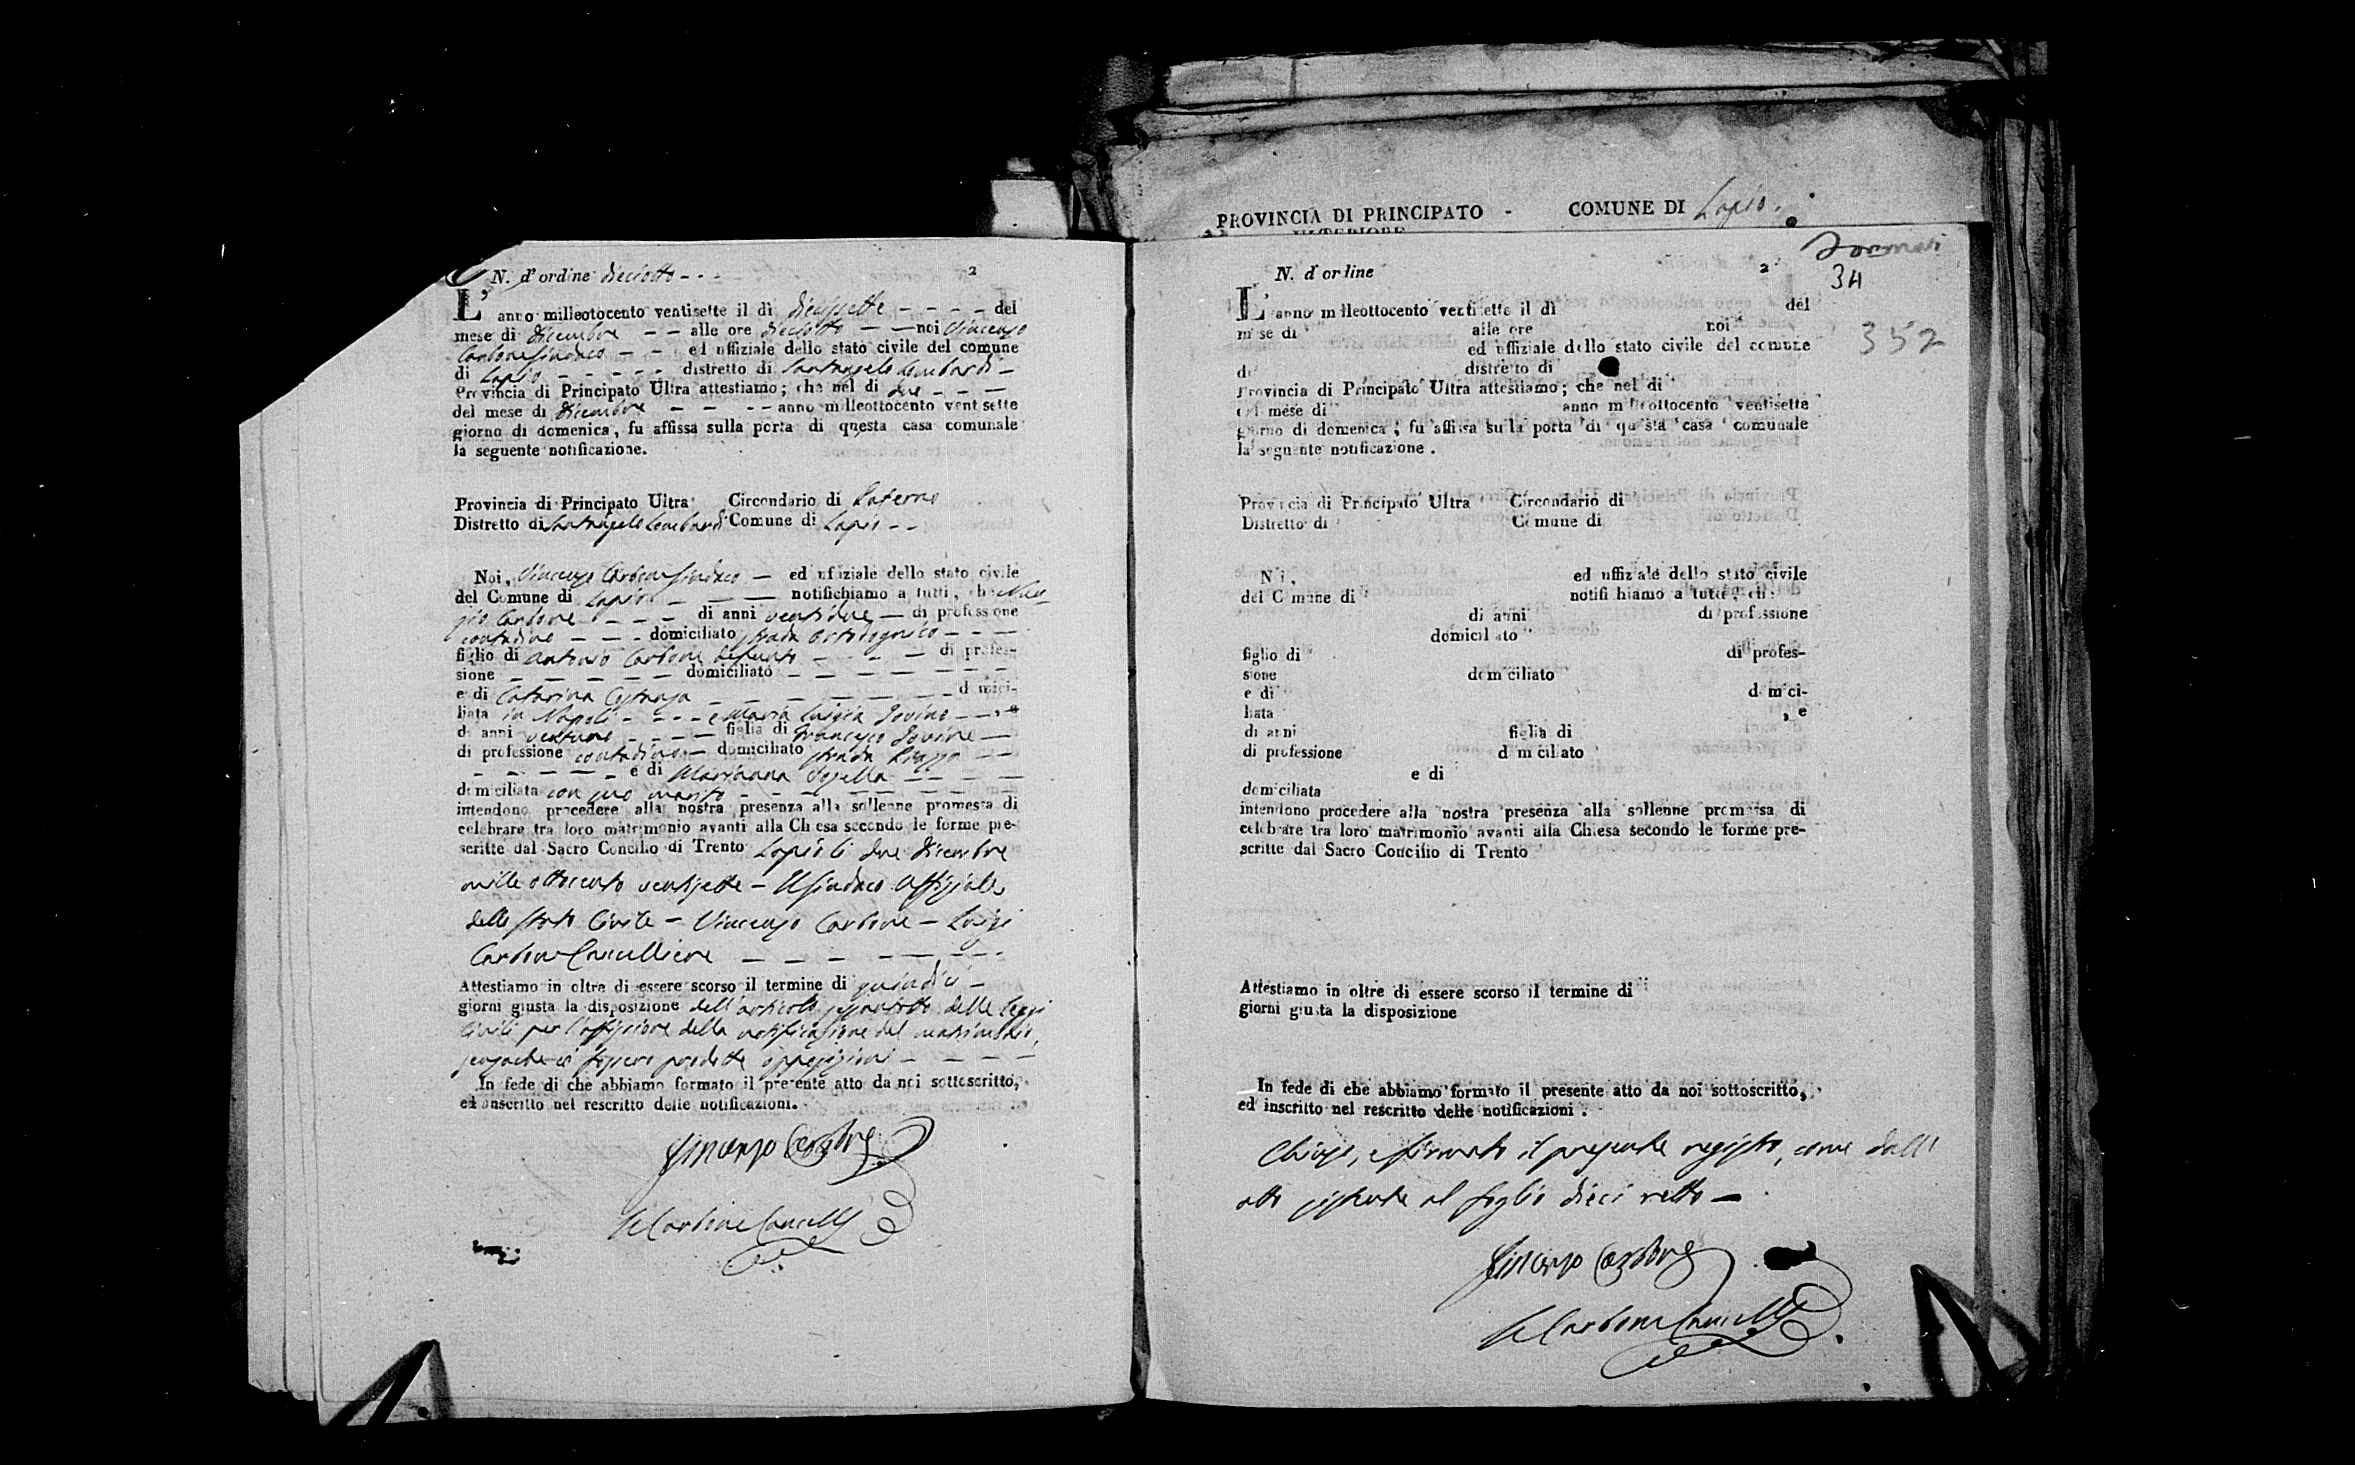 N. d'ordine dieciotto - - -
2
L'anno milleotocento ventisette il di diecissette - - - - del
mese di Dicembre - - alle ore dieciotto - - noi Vincenzo
Carbone Sindaco - - ed uffiziale dello stato civile del comune
di Lapio - - - - - distretto di Santangelo Lombardi -
Provincia di Principato Ultra attestiamo; che nel di due - - -
del mese di Dicembre - - - - anno milleottocento ventisette
giorno di domenica, fu affissa sulla porta di questa casa comunale
la seguente notificazione.
Provincia di Principato Ultra Circondario di Paterno
Distretto di Santangelo Lombardi Comune di Lapio - -
Noi, Vincenzo Carbone Sindaco - ed uffiziale dello stato civile
del Comune di Lapio - - - notifichiamo a tutti, che
Carbone - - - - di anni ventidue - di professione
contadino - - - domiciliato strada Ortodognico - - -
figlio di Antonio Carbone defunto - - - di profes-
sione - - - - - domiciliato - - - - - -
e di Catarina - - - - - - - domici-
liata in Napoli - - - - e Maria Luigia Iovine - - , e
di anni ventuno - - - - figlia di Francesco Iovine -
di professione contadino - domiciliato strada Piazza - -
- - - - - - e di Marianna - - - -
domiciliata con suo marito - - - - - - -
intendono procedere alla nostra presenza alla sollenne promessa di
celebrare tra loro matrimonio avanti alla Chiesa secondo le forme pre-
scritte dal Sacro Concilio di Trento Lapio li due Dicembre
mille ottocento ventisette - Il Sindaco Uffiziale
dello Stato Civile - Vincenzo Carbone - Luigi
Carbone Cancelliere - - - - - - -
Attestiamo in oltre di essere scorso il termine di quindici -
giorni giusta la disposizione dell'articolo sessantotto delle leggi
Civili per l'affissione della notificazione del matrimonio,
senza che ci fossero prodotte opposizioni - - - -
In fede di che abbiamo formato il presente atto da noi sottoscritto,
ed inscritto nel rescritto delle notificazioni.
Vincenzo Carbone
Carbone Cancell
PROVINCIA DI PRINCIPATO - COMUNE DI Lapio.
ULTERIORE
N. d'ordine
2
34
352
L'anno milleottocento ventisette il di del
mese di alle ore noi
ed uffiziale dello stato civile del comune
di distretto di
Provincia di Principato Ultra attestiamo; che nel di
del mese di anno milleottocento ventisette
giorno di domenica, fu affissa sulla porta di questa casa comunale
la seguente notificazione.
Provincia di Principato Ultra Circondario di
Distretto di Comune di
Noi, ed uffiziale dello stato civile
del Comune di notifichiamo a tutti, che
di anni di professione
domiciliato
figlio di di profes-
sione domiciliato
e di domici-
liata , e
di anni figlia di
di professione domiciliato
e di
domiciliata
intendono procedere alla nostra presenza alla sollenne promessa di
celebrare tra loro matrimonio avanti alla Chiesa secondo le forme pre-
scritte dal Sacro Concilio di Trento
Attestiamo in oltre di essere scorso il termine di
giorni giusta la disposizione
In fede di che abbiamo formato il presente atto da noi sottoscritto,
ed inscritto nel rescritto delle notificazioni.
Chiuso, e firmato il presente registro, come dall'
atto esistente al foglio dieci retto -
Vincenzo Carbone
Carbone Cancell